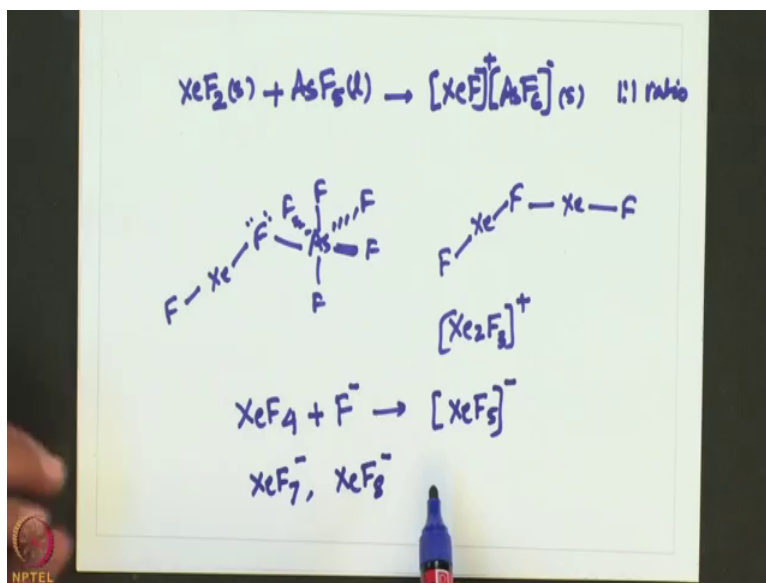 XeF₂(s) + AsF₅(l) → [XeF]⁺[AsF₆]⁻(s) 1:1 ratio
F F F
F – Xe – F – As – F
F
F – Xe – F – Xe – F
[Xe₂F₃]⁺
XeF₄ + F⁻ → [XeF₅]⁻
XeF₇⁻, XeF₈⁻
NPTEL